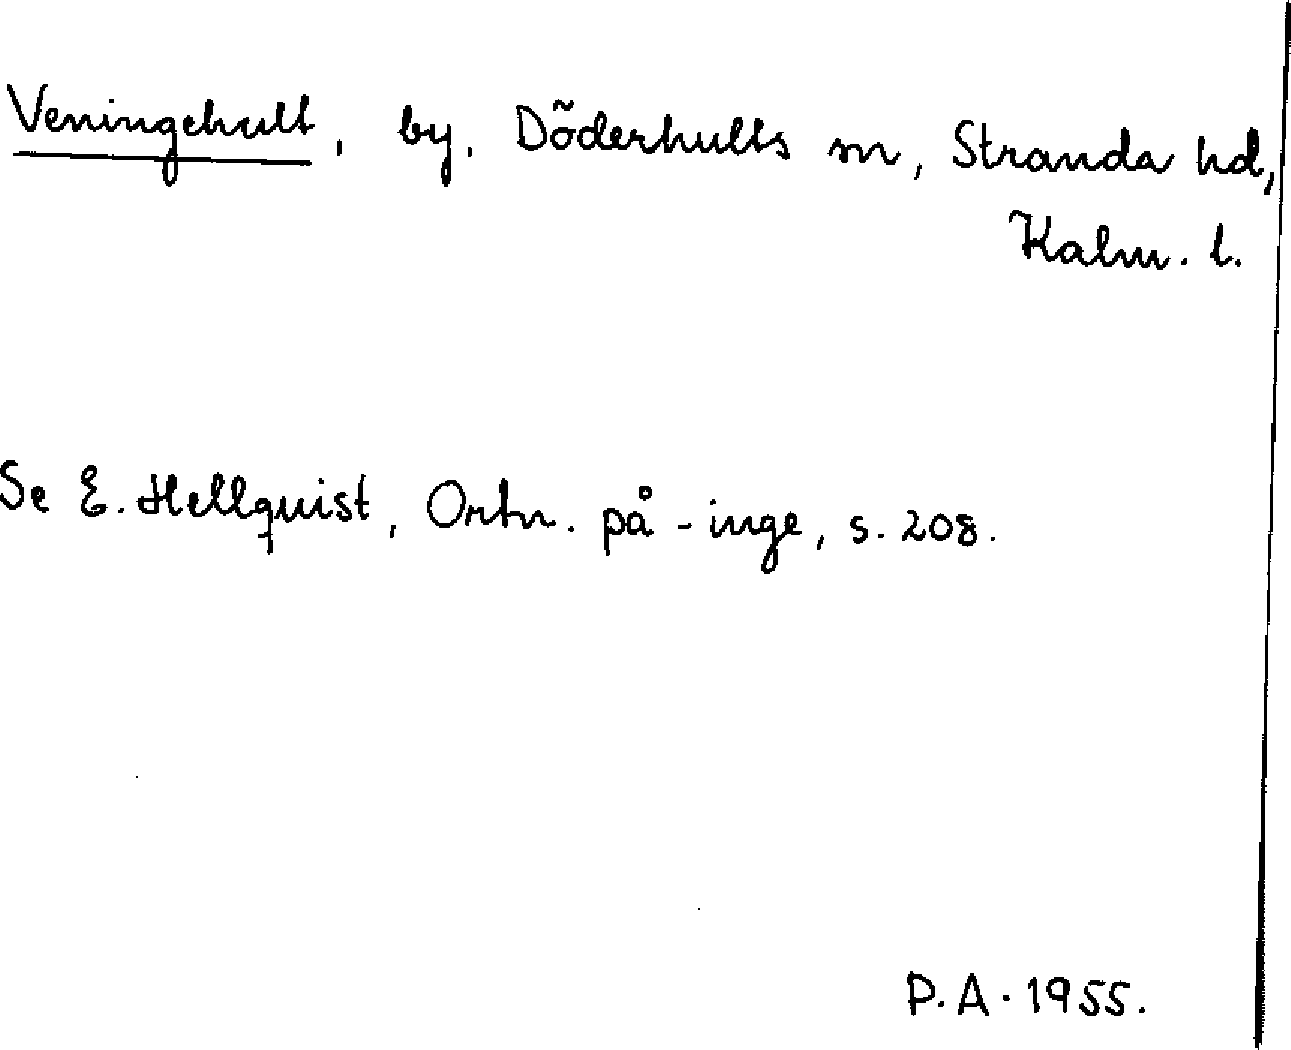 Veningehult, by, Döderhults sn, Stranda hd,
Kalm. l.
Se E. Hellquist, Ortn. på -inge, s. 208.
P.A. 1955.